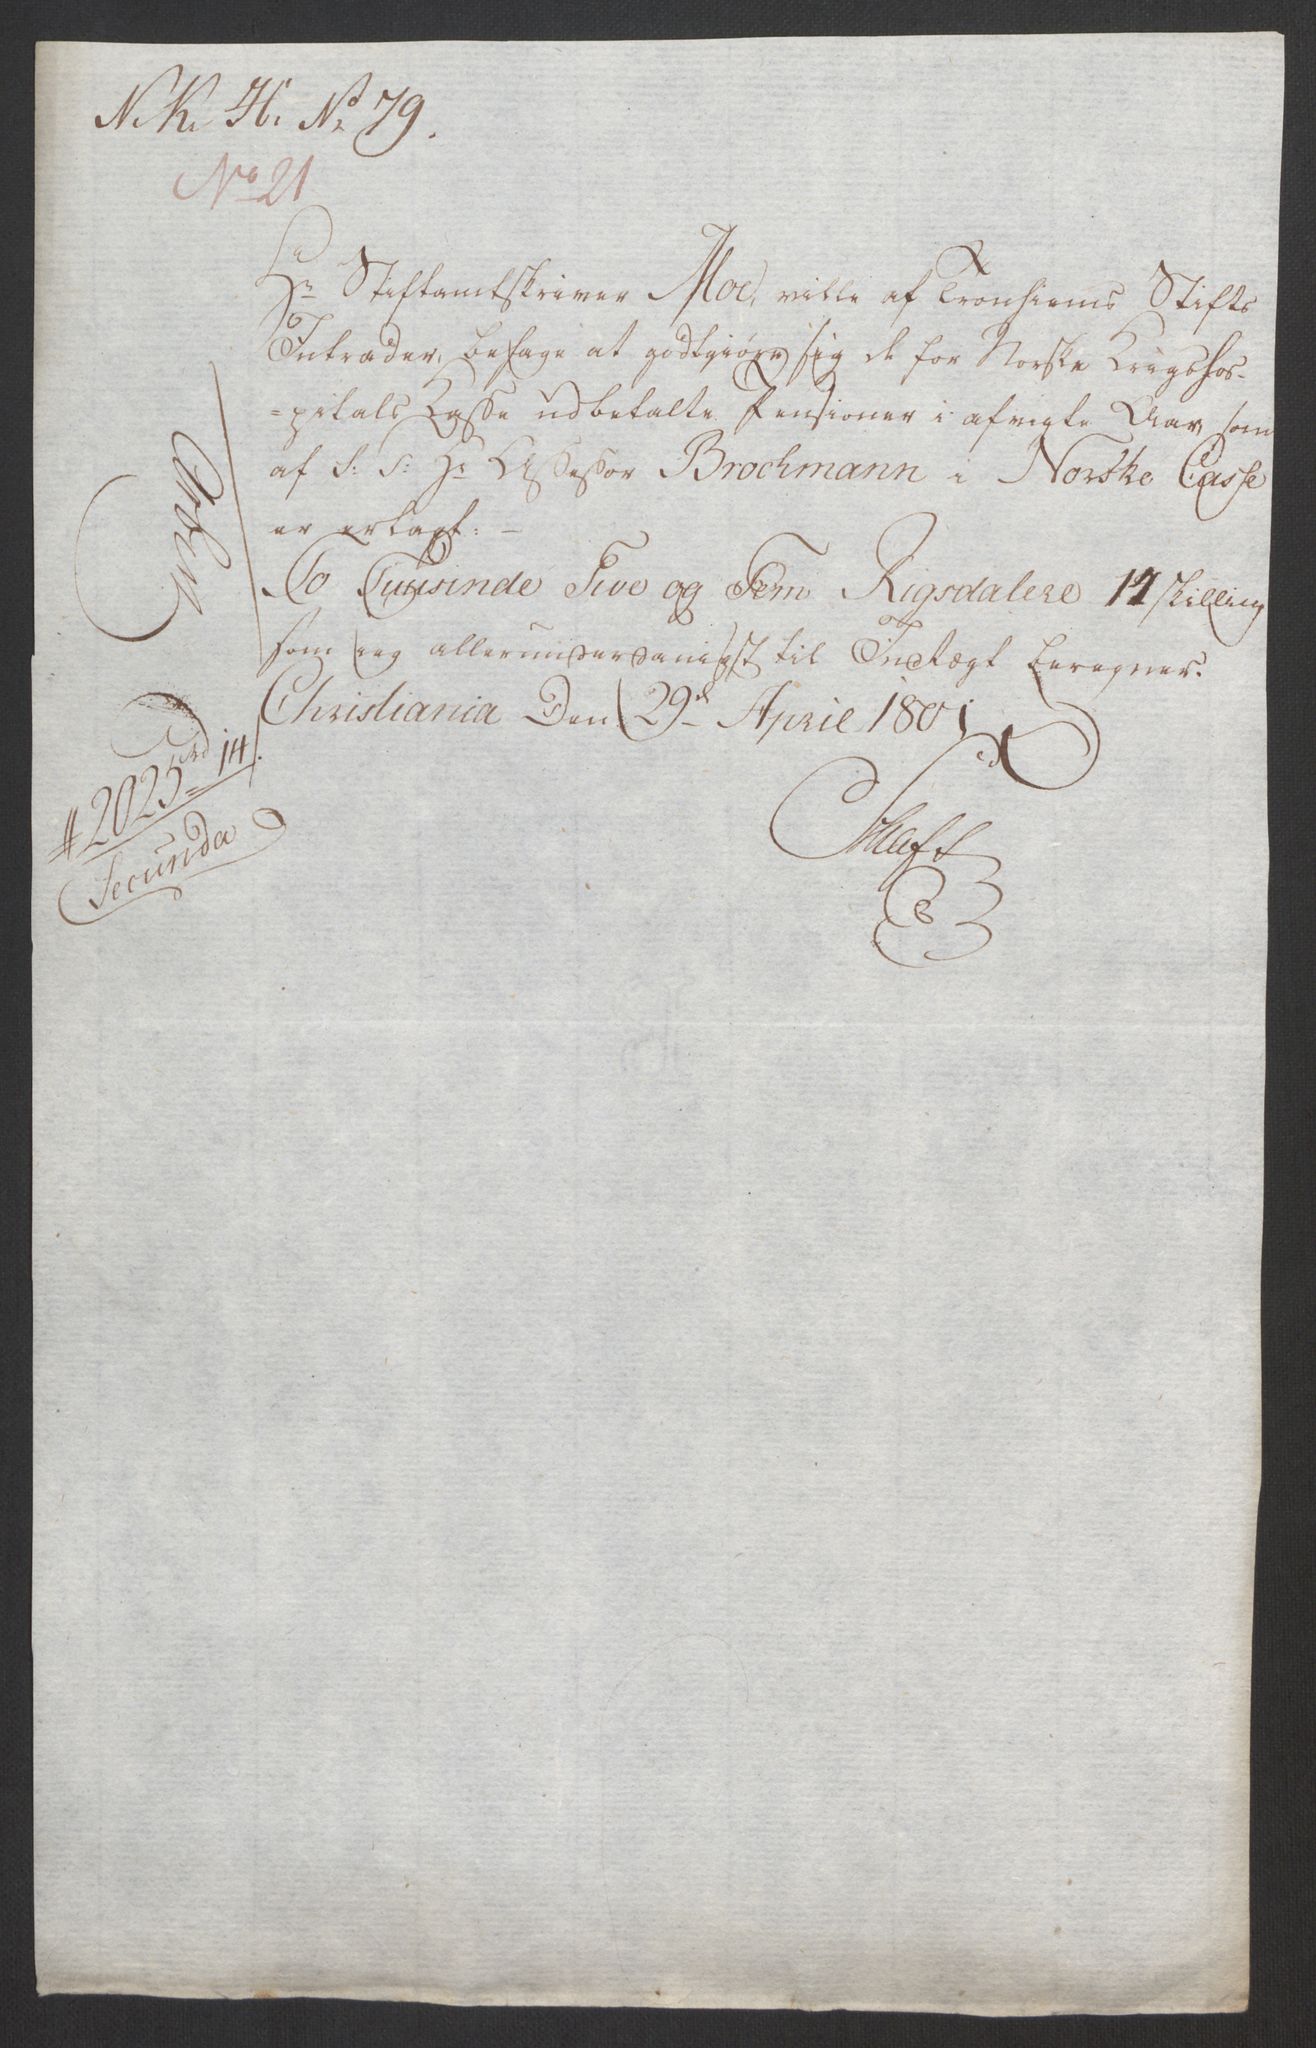 N. K. H. No 79.
No 21
Hr Stiftamtskriver Moe, ville af Tronhiems Stifts
Intrader, behage at godtgiøre sig de for Norske Krigshos-
=pitals Casse udbetalte Pensioner i afvigte Aar, som
af S: T: Hr Assessor Brochmann i Norske Casse
er erlagt: –
To Tuusinde Tive og Fem Rigsdalere 14 skilling
som ieg allerunderdanigst til Indtægt beregner.
Christiania Den 29d April 1801
# 2025 rd 14 s.
Secunda